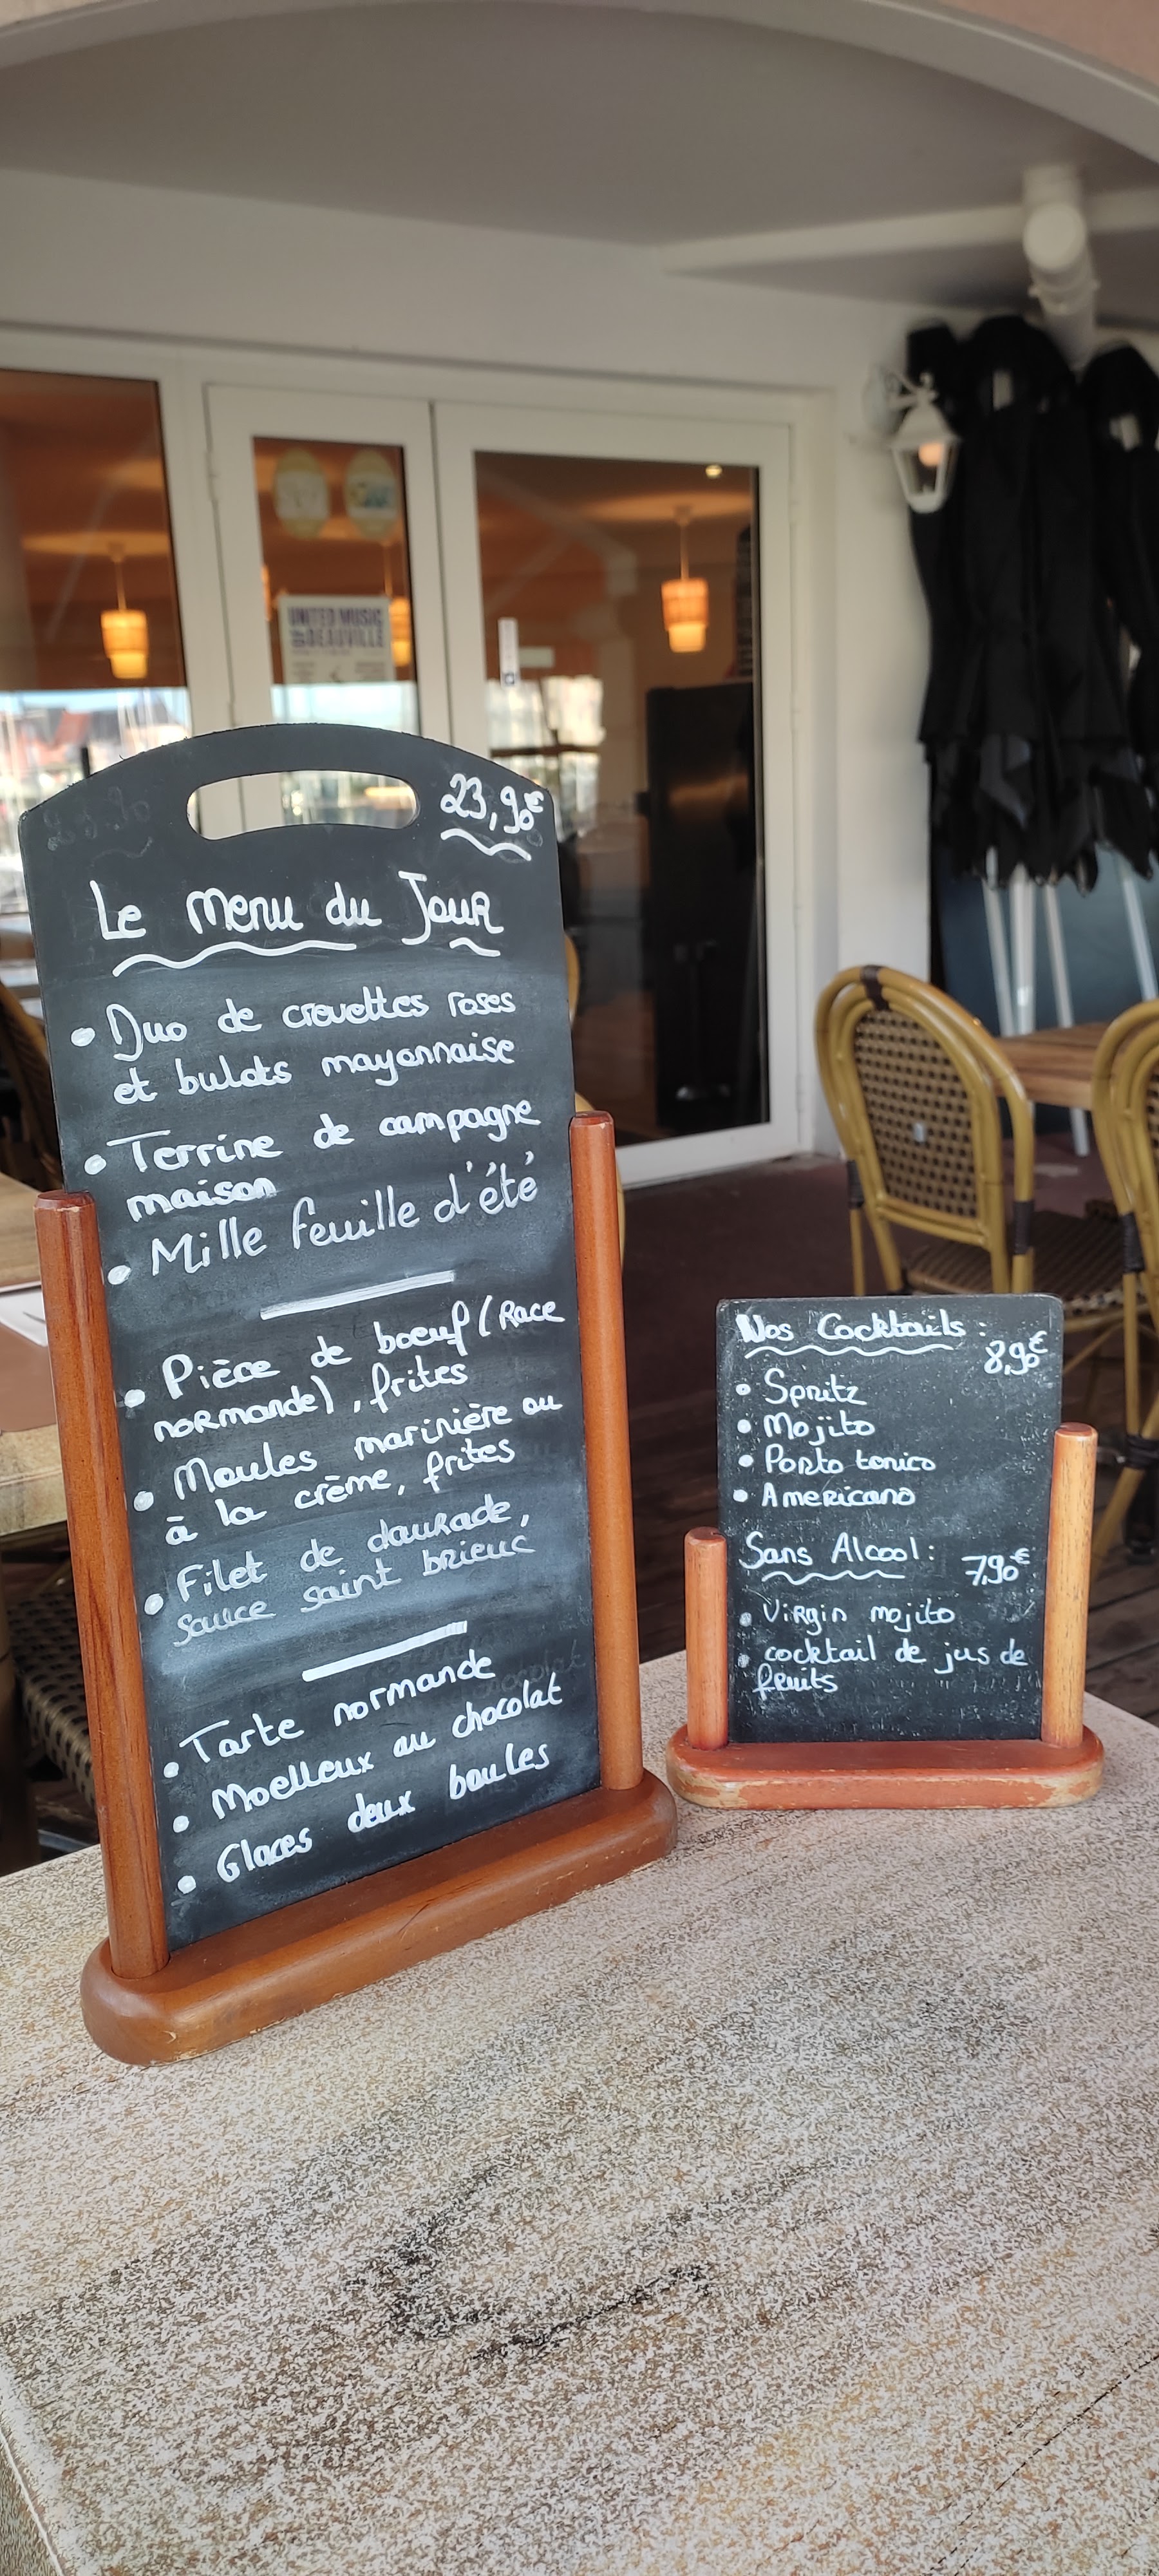 UNITED MUSIC
OF DEAUVILLE
23,90€
Le Menu du Jour
• Duo de crevettes roses
et bulots mayonnaise
• Terrine de campagne
maison
• Mille feuille d'été
• Pièce de boeuf (Race
normande), frites
• Moules marinière ou
à la crème, frites
• Filet de daurade,
sauce saint brieuc
• Tarte normande
• Moelleux au chocolat
• Glaces deux boules
Nos Cocktails :
8,90€
• Spritz
• Mojito
• Porto tonico
• Americano
Sans Alcool : 7,90€
• Virgin mojito
• cocktail de jus de
fruits